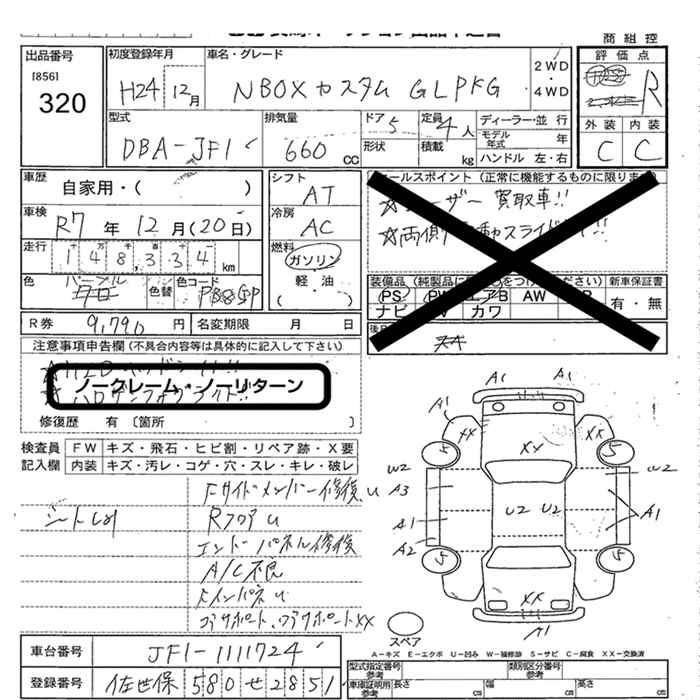 商組控
出品番号
[856]
320
初度登録年月
H24 12月
車名・グレード
NBOXカスタム G L PKG
2WD
・
4WD
評価点
R
外装 内装
C C
型式
DBA-JF1
排気量
660 cc
ドア 5
形状
定員 4人
積載 kg
ディーラー・並行
モデル年式 年
ハンドル 左・右
車歴
自家用・( )
車検
R7年12月(20日)
走行
148,334 km
色
パープル
色替
色コード
シフト
AT
冷房
AC
燃料
ガソリン
軽・油
( )
セールスポイント(正常に機能するものに限ります)
☆ユーザー買取車!!
☆両側電動スライドドア!!
装備品(純正品に○をつけてください)
新車保証書
PS PW エアB AW
ナビ TV カワ
有・無
R券 9,790円
名変期限 月 日
注意事項申告欄(不具合内容等は具体的に記入して下さい)
ノークレーム・ノーリターン
修復歴 有〔箇所 〕
検査員記入欄
FW キズ・飛石・ヒビ割・リペア跡・X要
内装 キズ・汚レ・コゲ・穴・スレ・キレ・破レ
Fサイドメンバー修復U
シートしわ
RフロアU
エンドーパネル修復
A/C不良
FインパネU
コアサポート、ロアサポートXX
A1 A1
A1 A1
XX XX
XX
S S
W2 W2
A3
U2 U2
A1 A1
A2
S S
XX
A1
スペア
A-キズ E-エクボ U-凹み W-補修跡 S-サビ C-腐食 XX-交換済
車台番号
JF1-1111724
登録番号
佐世保 580 せ 2851
型式指定番号
参考
類別区分番号
参考
車庫証明用
参考
長さ cm
幅 cm
高さ cm